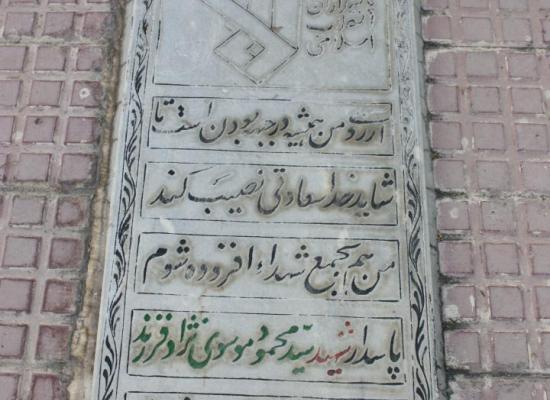 پاسداران
انقلاب
اسلامی
آرزوی من همیشه در جبهه بودن است تا
شاید خدا سعادتی نصیب کند
من هم بجمع شهداء افزوده شوم
پاسدار شهید سید محمود موسوی نژاد فرزند